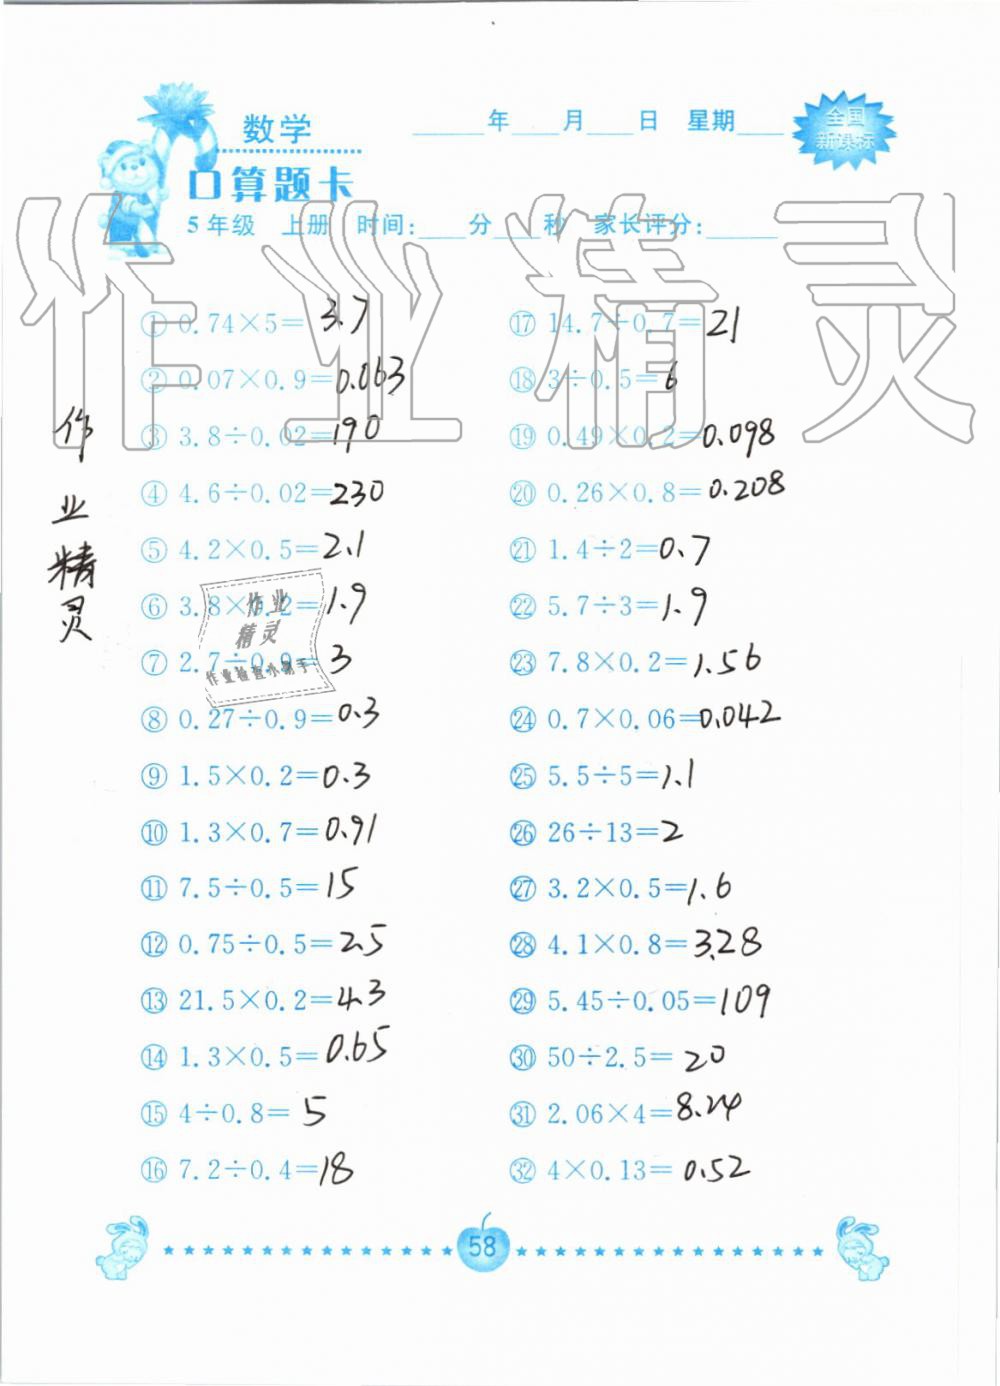 数学
口算题卡
____年____月____日 星期____
全国
新课标
5年级 上册 时间:____分____秒 家长评分:______
作业精灵
① 0.74×5=3.7
② 0.07×0.9=0.063
③ 3.8÷0.02=190
④ 4.6÷0.02=230
⑤ 4.2×0.5=2.1
⑥ 3.8×0.2=1.9
⑦ 2.7÷0.9=3
⑧ 0.27÷0.9=0.3
⑨ 1.5×0.2=0.3
⑩ 1.3×0.7=0.91
⑪ 7.5÷0.5=15
⑫ 0.75÷0.5=2.5
⑬ 21.5×0.2=4.3
⑭ 1.3×0.5=0.65
⑮ 4÷0.8=5
⑯ 7.2÷0.4=18
⑰ 14.7÷0.7=21
⑱ 3÷0.5=6
⑲ 0.49×0.2=0.098
⑳ 0.26×0.8=0.208
㉑ 1.4÷2=0.7
㉒ 5.7÷3=1.9
㉓ 7.8×0.2=1.56
㉔ 0.7×0.06=0.042
㉕ 5.5÷5=1.1
㉖ 26÷13=2
㉗ 3.2×0.5=1.6
㉘ 4.1×0.8=3.28
㉙ 5.45÷0.05=109
㉚ 50÷2.5=20
㉛ 2.06×4=8.24
㉜ 4×0.13=0.52
作
业
精
灵
作业
精灵
作业检查小助手
58